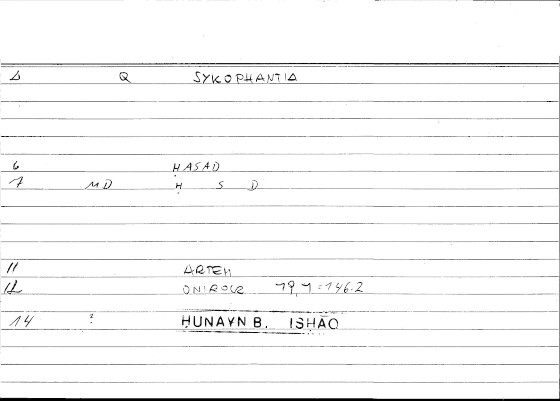 Δ Q SYKOPHANTIA
6 ḤASAD
7 MD Ḥ S D
11 ARTEM
12 ONIROCR 79,7=146.2
14 ? ḤUNAYN B. ISḤĀQ